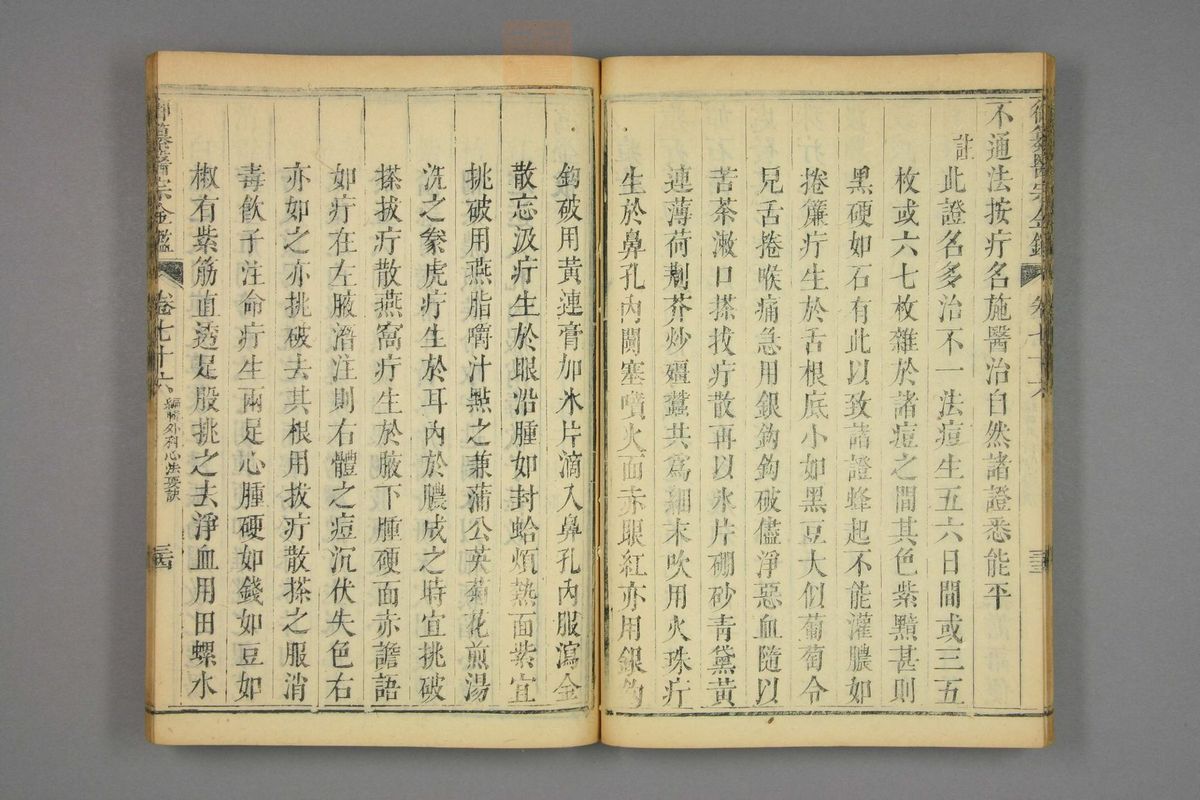 御纂醫宗金鑑 卷七十六 三三
不通法按疔名施醫治自然諸證悉能平
註
此證名多治不一法痘生五六日間或三五
枚或六七枚雜於諸痘之間其色紫黯甚則
黑硬如石有此以致諸證蜂起不能灌膿如
捲簾疔生於舌根底小如黑豆大似葡萄令
兒舌捲喉痛急用銀鈎鈎破儘淨惡血隨以
苦茶漱口搽拔疔散再以氷片硼砂青黛黃
連薄荷荆芥炒殭蠶共爲細末吹用火珠疔
生於鼻孔內闐塞噴火面赤眼紅亦用銀鈎
鈎破用黃連膏加氷片滴入鼻孔內服瀉金
散忘汲疔生於眼沿腫如封蛤煩熱面紫宜
挑破用燕脂嚼汁點之兼蒲公英菊花煎湯
洗之豢虎疔生於耳內於膿成之時宜挑破
搽拔疔散燕窩疔生於腋下腫硬面赤譫語
如疔在左腋潛注則右體之痘沉伏失色右
亦如之亦挑破去其根用拔疔散搽之服消
毒飮子注命疔生兩足心腫硬如錢如豆如
椒有紫筋直透足股挑之去淨血用田螺水
御纂醫宗金鑑 卷七十六 編輯外科心法要訣 三四